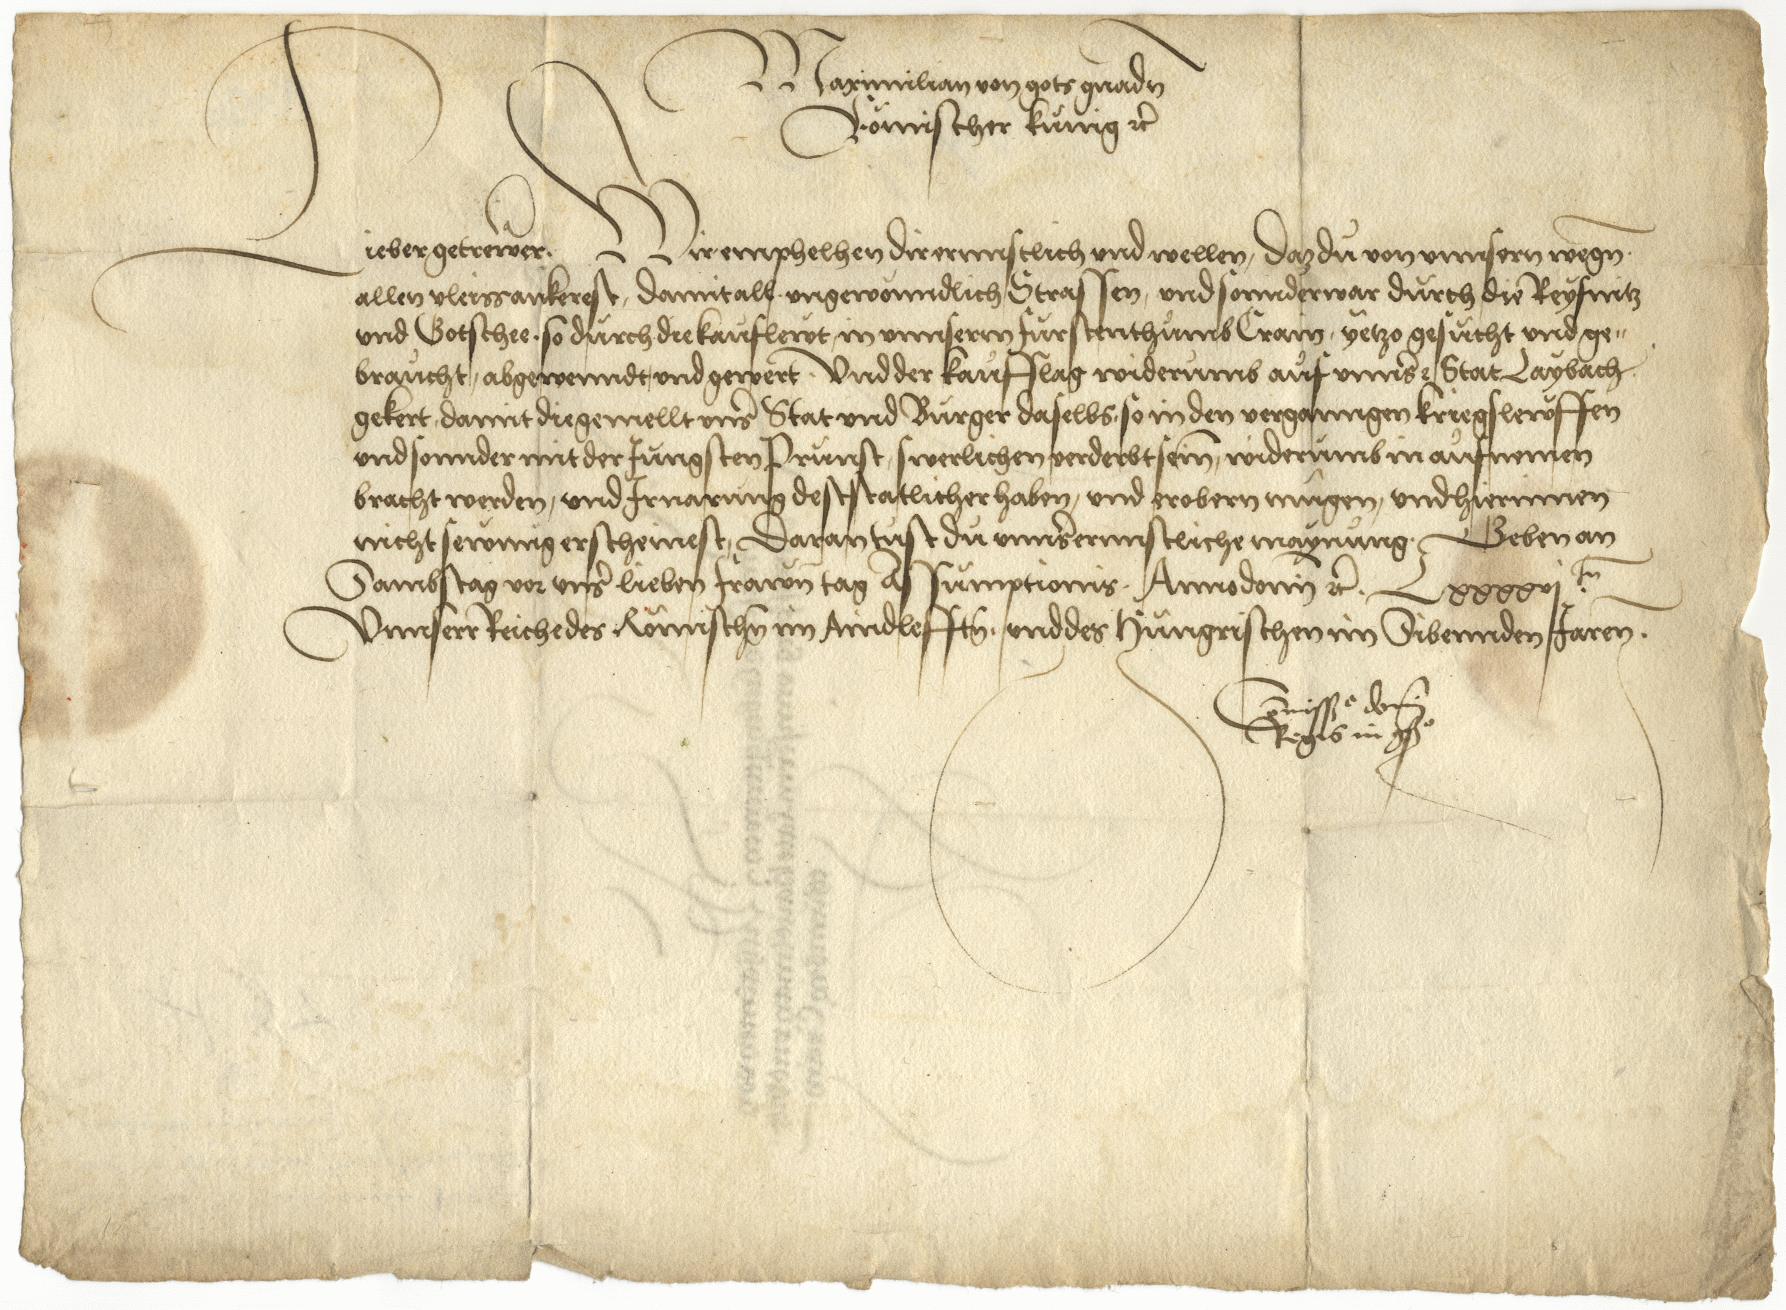 Maximilian von gots gnadn
Römischer kunig ꝛc
Lieber getrewer. Wir emphelhen dir ernnstlich vnd wellen, daz du von vnnsern wegn
allen vleiss ankerest, damit all vngewonndlich Strassen, vnd sonnderwar durch die Reyfnitz
vnd Gotschee, so durch die kauflewt in vnnserm furstenthumb Crain, yetzo gesucht vnd ge=
braucht, abgewenndt vnd gewert. Vnd der kaufslag widerumb auf vnnser Stat Laybach
gekert, damit die gemellt vnser Stat vnd Burger daselbs, so in den verganngen kriegslewffen
vnd sonnder mit der Jungsten Prunst, swerlichen verderbt sein, widerumb in aufnemen
bracht werden, vnd Ir narung dest statlicher haben, vnd erobern mugen, vnd hierinnen
nicht sewmig erscheinest, Daran tust du vnnser ernnstliche maynung. Geben an
Sambstag vor vnser lieben frawn tag Assumptionis. Anno domini ꝛc. Lxxxxvj
Vnnserr Reiche des Römischn im Aindlefftn, vnd des Hungrischen im Sibennden Jaren.
Comissio domini
Regis in